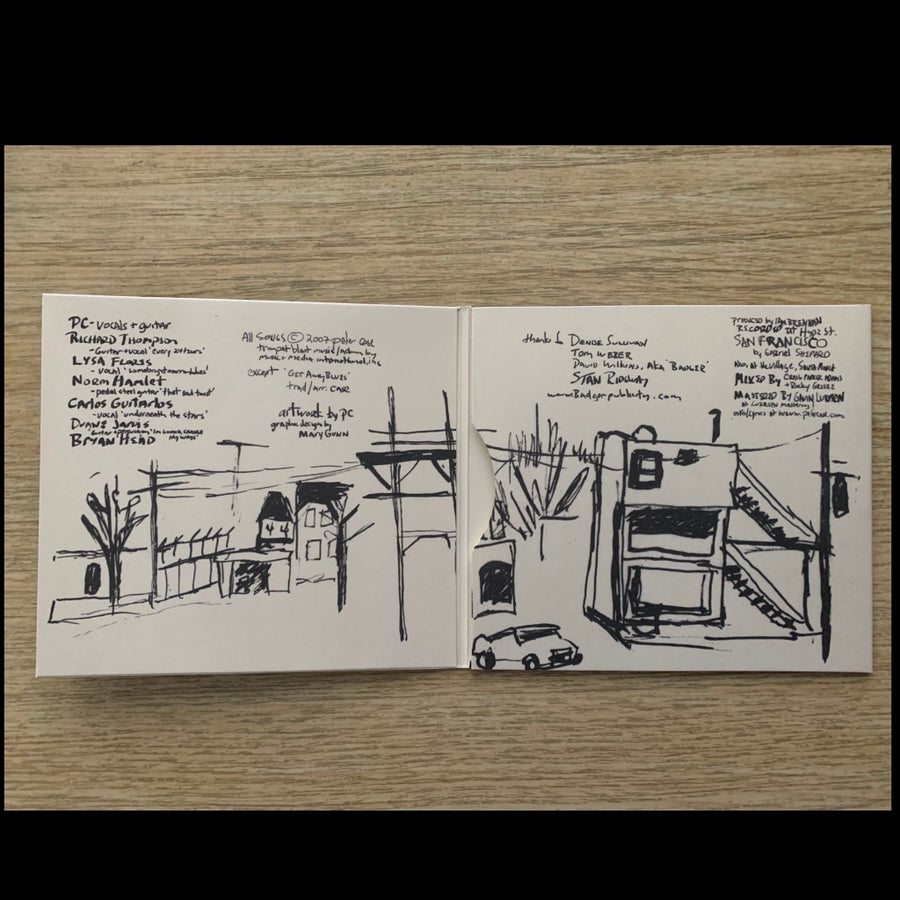 PC - vocals + guitar
RICHARD THOMPSON
- Guitar + vocal 'every 24 hours'
LYSA FLORES
- vocal
NORM HAMLET
- pedal steel guitar 'that sad twist'
CARLOS GUITARLOS
- vocal 'underneath the stars'
DUANE JARVIS
BRYAN HEAD
All SONGS © 2007 peter case
trumpet blast music/admin by
music + media international, inc
except 'GET AWAY BLUES'
trad/arr. CASE
artwork by PC
graphic design by
MARY GUNN
thanks to DENISE SULLIVAN
TOM WEBER
DAVID WILKINS, AKA 'BADGER'
STAN RIDGWAY
www.Badgerpublicity.com
PRODUCED by IAN BRENNAN
RECORDED AT HYDE ST.
SAN FRANCISCO
by GABRIEL SHEPARD
MIXED By
MASTERED By GAVIN LURSSEN
at LURSSEN MASTERING
info/lyrics at www.petercase.com
44